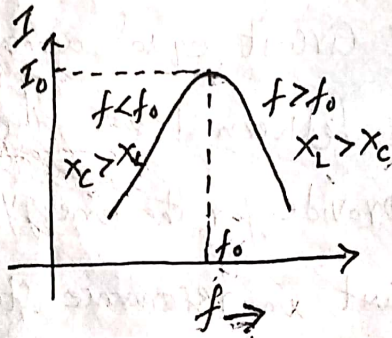 I
I₀
f<f₀ f>f₀
X_C>X_L X_L>X_C
f₀
f→